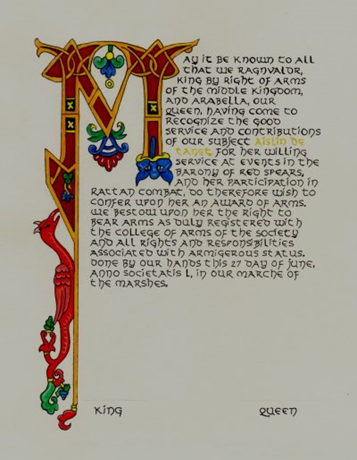 May it be known to all
that we Ragnvaldr,
King by right of arms
of the Middle Kingdom,
and Arabella, our
Queen, having come to
recognize the good
service and contributions
of our subject Aislin de
Tanet for her willing
service at events in the
Barony of Red Spears,
and her participation in
rattan combat, do therefore wish to
confer upon her an Award of Arms.
We bestow upon her the right to
bear arms as duly registered with
the College of Arms of the Society
and all rights and responsibilities
associated with armigerous status.
Done by our hands this 27 day of June,
Anno Societatis L, in our Marche of
the Marshes.
King Queen